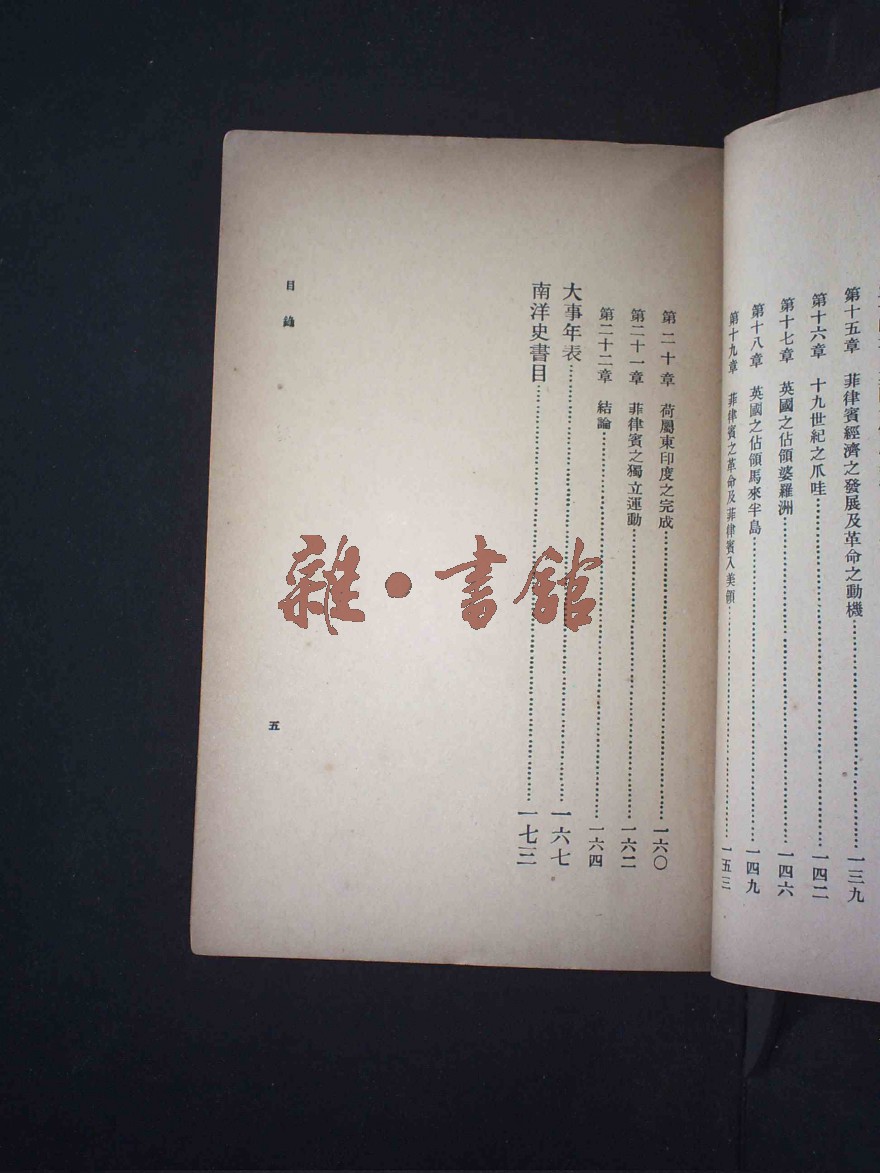 第十五章　菲律賓經濟之發展及革命之動機……一三九
第十六章　十九世紀之爪哇……一四二
第十七章　英國之佔領婆羅洲……一四六
第十八章　英國之佔領馬來半島……一四九
第十九章　菲律賓之革命及菲律賓入美領……一五三
第二十章　荷屬東印度之完成……一六〇
第二十一章　菲律賓之獨立運動……一六二
第二十二章　結論……一六四
大事年表……一六七
南洋史書目……一七三
目錄
五
雜·書館